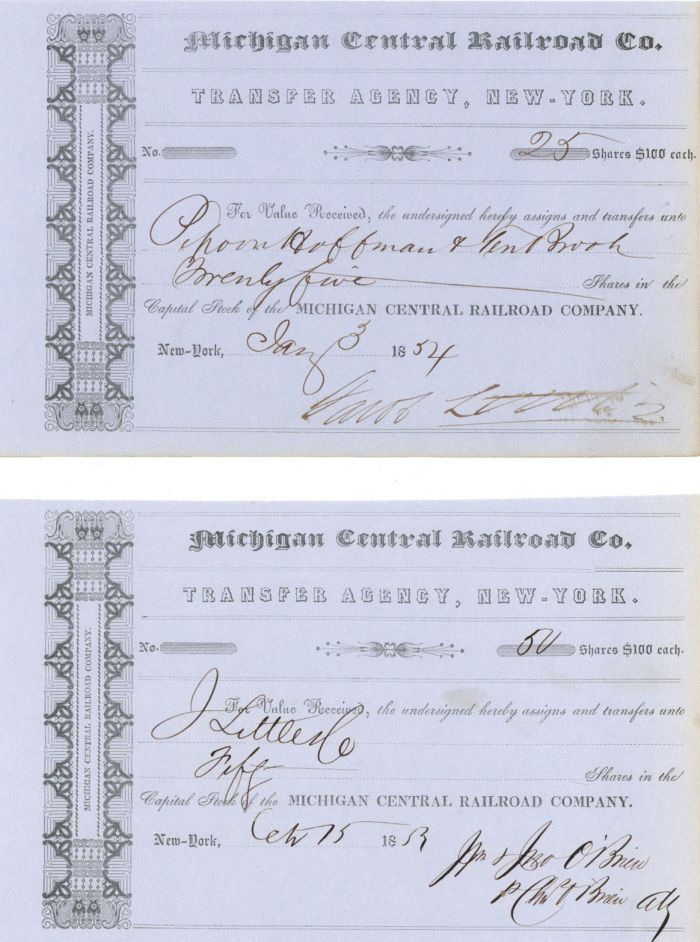 Michigan Central Railroad Co.
TRANSFER AGENCY, NEW-YORK.
No. 25 Shares $100 each.
For Value Received, the undersigned hereby assigns and transfers unto
Hoffman & Ten Brook
Twenty five Shares in the
Capital Stock of the MICHIGAN CENTRAL RAILROAD COMPANY.
New-York, Jany 3 1854
Jacob Little
MICHIGAN CENTRAL RAILROAD COMPANY.
Michigan Central Railroad Co.
TRANSFER AGENCY, NEW-YORK.
No. 50 Shares $100 each.
For Value Received, the undersigned hereby assigns and transfers unto
J Little & Co
Fifty Shares in the
Capital Stock of the MICHIGAN CENTRAL RAILROAD COMPANY.
New-York, 15 1853
Wm & Jno O'Brien
P Chas O'Brien atty
MICHIGAN CENTRAL RAILROAD COMPANY.